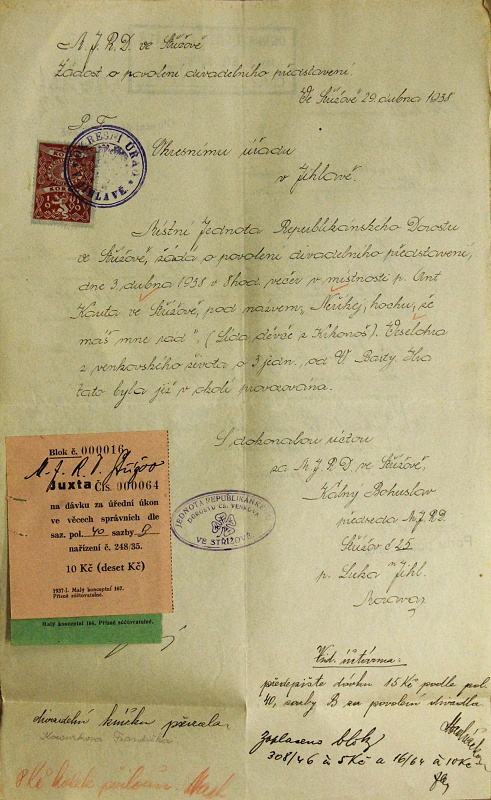 M. J. R. D. ve Střížově
Žádost o povolení divadelního představení.
Ve Střížově 29. dubna 1938
P. T.
Okresnímu úřadu
v Jihlavě.
OKRESNÍ ÚŘAD
JIHLAVĚ
Místní Jednota Republikánského Dorostu
ve Střížově, žádá o povolení divadelního představení,
dne 3. dubna 1938 v 8 hod. večer v místnosti p. Ant
Kauta ve Střížově, pod nazvem, "Neříkej, hochu, že
máš mne rád". (Lída, děvče z Krkonoš). Veselohra
z venkovského života o 3 jedn., od V. Bárty. Hra
tato byla již v okolí provozována.
S dokonalou úctou
za M. J. R. D. ve Střížově,
Kálny Bohuslav
předseda M. J. R. D.
Střížov č 25
p. Luka n Jihl.
Morava
JEDNOTA REPUBLIKÁNSKÉHO
DOROSTU ČS. VENKOVA
VE STŘÍŽOVĚ
Blok č. 000016
M. J. R. D. Střížov
Juxta Čís. 000064
na dávku za úřední úkon
ve věcech správních dle
saz. pol. 40 sazby B
nařízení č. 248/35.
10 Kč (deset Kč)
1937-I. Malý konceptní 167.
Přísně súčtovatelné.
Malý konceptní 166. Přísně súčtovatelné.
Vid. účtárna:
předepište dávku 15 Kč podle pol.
40, sazby B za povolení divadla
Zaplaceno bloky
308/46 à 5 Kč a 16/64 à 10 Kč
divadelní knížku převzala
8 Kč kolek